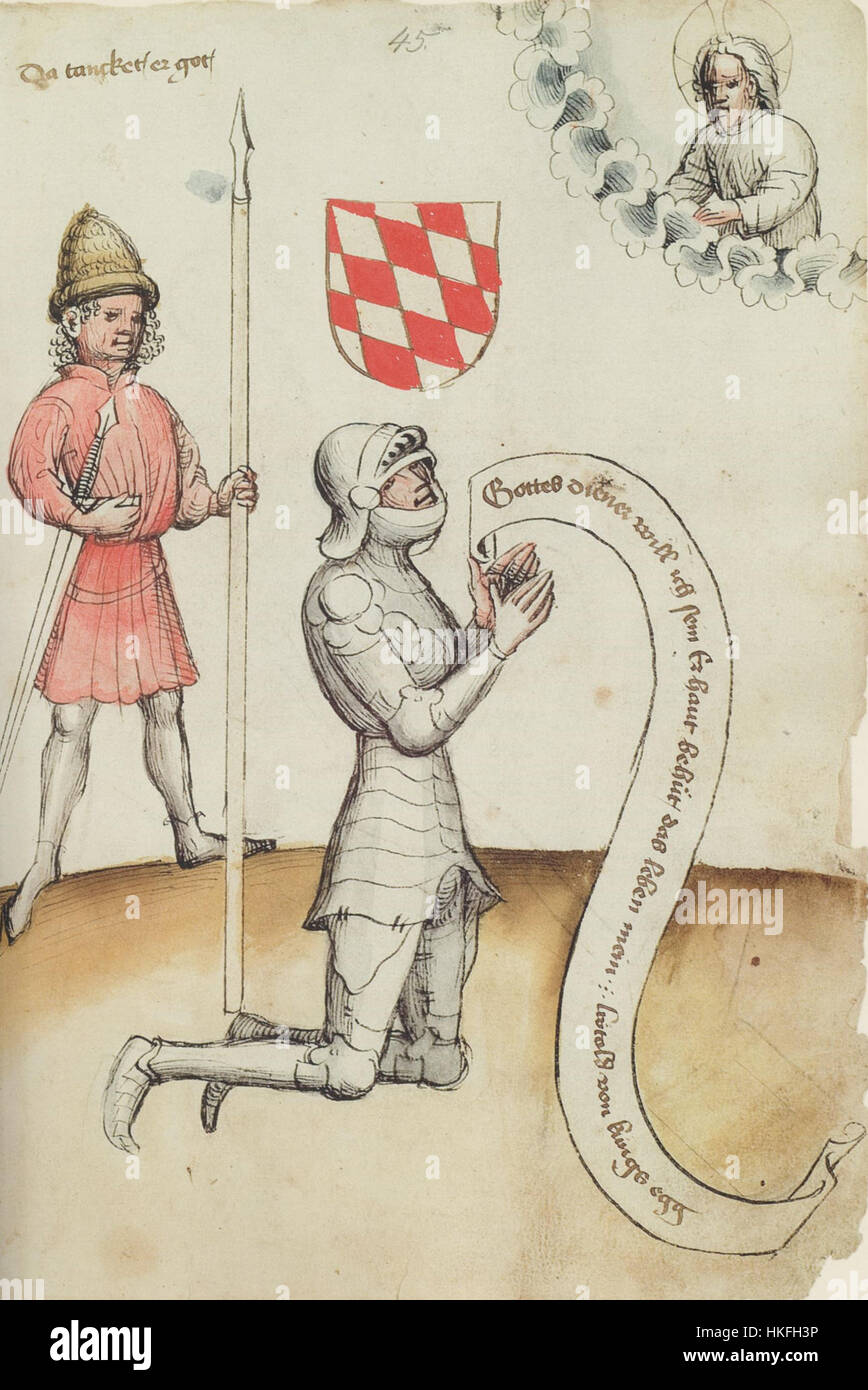 45.
Da tancket er got
Gottes diener will ich sein Er haut behüt das leben mein : lütold von künsegg
alamy stock photo
Image ID: HKFH3P
www.alamy.com